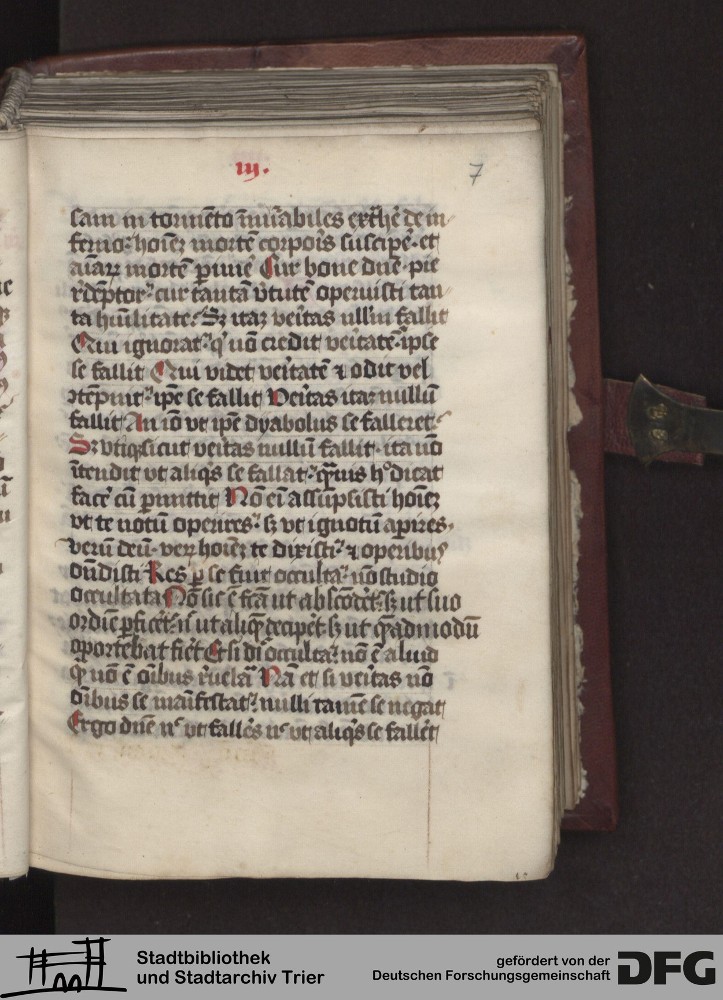 iij.
7
sam in tormēto īmutabiles extͬhe de in
ferno. hoīez mortē corporis suscipe. et
aīarz mortē pimē Cur bone dn̄e. pie
redēptor. cur tantā v̓tutē operuisti tan
ta hūilitate. Sz itaz veritas nullum fallit
Qui ignorat. qͥ nō credit veritatē. ipse
se fallit Qui videt veritatē ⁊ odit vel
ꝯtēpnit. ip̄e se fallit Veritas itaz nullū
fallit An iō vt ip̄e dyabolus se falleret.
Sz vtiqꝫ sicut veritas nullū fallit. ita nō
ītendit vt aliqͥs se fallat. qͣuis hͦ dicat
face cū ꝑmittit Nō em̄ assūpsisti hoīez
vt te notū operires. sꝫ vt ignotū apires.
verū deū. verꝫ hoīez te dixisti. ⁊ operibus
on̄disti Res ꝑ se fuit occulta. nō studio
occultata Nō sic ē fc̄a ut absc̄oderet. sꝫ ut suo
ordīe ꝑficeret. nͨ ut aliqͣꝫ deciꝑet. sꝫ ut qͣadmodū
oportebat fieret Et si dr̄ occulta. nō ē aliud
qͣ nō ē oībus revelata Nā et si veritas nō
oībus se maīfestat. nulli tamē se negat
Ergo dn̄e nͨ vt falleres nͨ vt aliqͥs se falleret
Stadtbibliothek
und Stadtarchiv Trier
gefördert von der
Deutschen Forschungsgemeinschaft
DFG